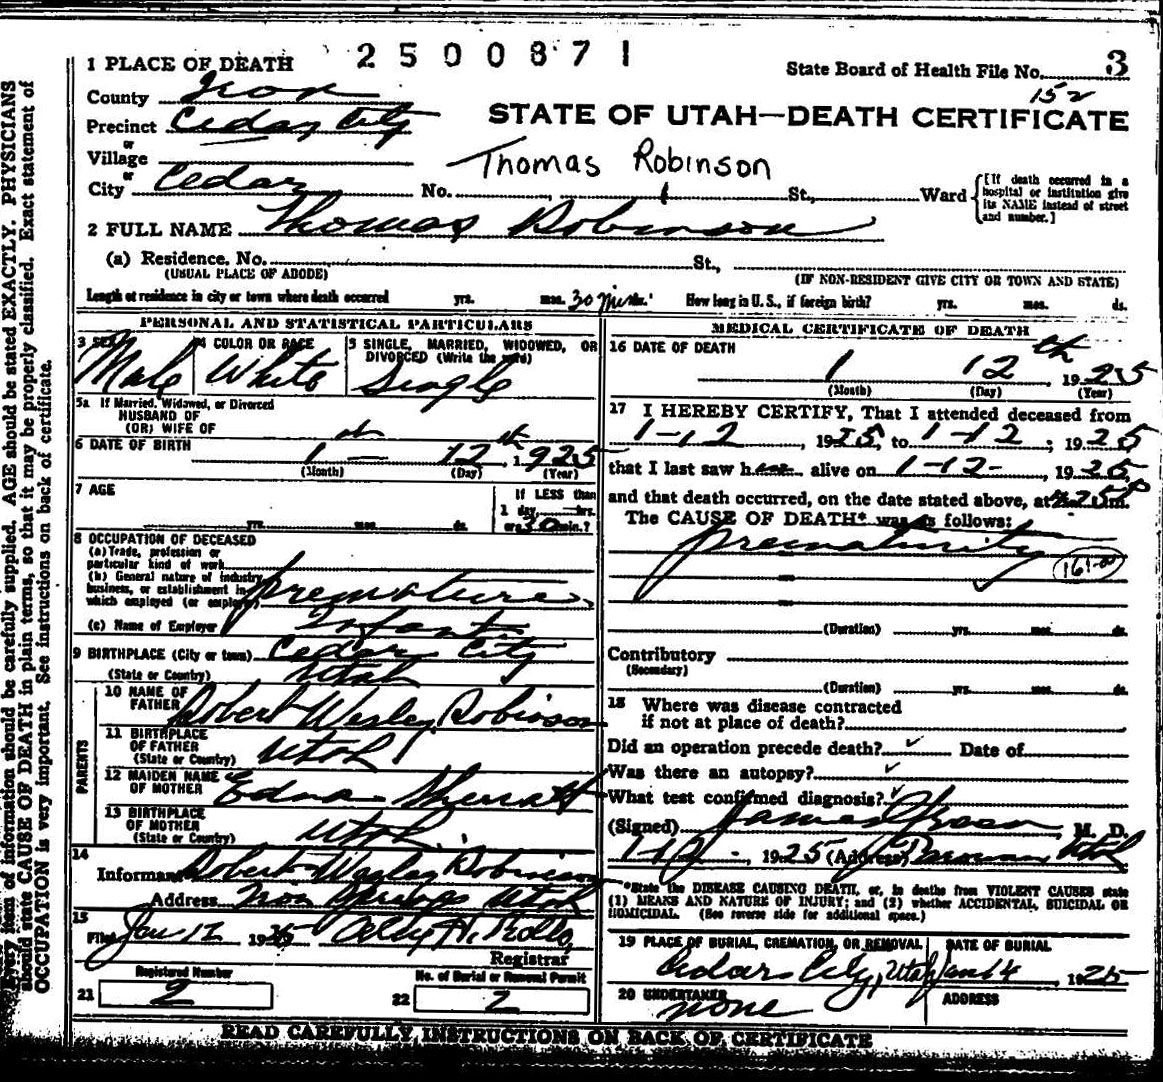 2500371
1 PLACE OF DEATH
State Board of Health File No. 3
152
County Iron
STATE OF UTAH—DEATH CERTIFICATE
Precinct Cedar City
or
Village
Thomas Robinson
or
City Cedar No. St., Ward
[If death occurred in a hospital or institution give its NAME instead of street and number.]
2 FULL NAME Thomas Robinson
(a) Residence. No. St.,
(USUAL PLACE OF ABODE) (IF NON-RESIDENT GIVE CITY OR TOWN AND STATE)
Length of residence in city or town where death occurred yrs. mos. 30 Min. How long in U. S., if foreign birth? yrs. mos. ds.
PERSONAL AND STATISTICAL PARTICULARS
3 SEX 4 COLOR OR RACE 5 SINGLE, MARRIED, WIDOWED, OR
DIVORCED (Write the word)
Male White Single
5a If Married, Widowed, or Divorced
HUSBAND OF
(OR) WIFE OF
6 DATE OF BIRTH 1 12th, 1925
(Month) (Day) (Year)
7 AGE
yrs. mos. ds.
If LESS than
1 day, hrs.
or 30 min.?
8 OCCUPATION OF DECEASED
(a) Trade, profession or
particular kind of work
(b) General nature of industry,
business, or establishment in
which employed (or employer) premature
(c) Name of Employer Infant
9 BIRTHPLACE (City or town) Cedar City
(State or Country) Utah
PARENTS
10 NAME OF
FATHER Robert Wesley Robinson
11 BIRTHPLACE
OF FATHER
(State or Country) Utah
12 MAIDEN NAME
OF MOTHER Edna Sherratt
13 BIRTHPLACE
OF MOTHER
(State or Country) Utah
14
Informant Robert Wesley Robinson
Address Iron Springs Utah
15
Filed Jan 12 1925
Registrar
Registered Number
21 2
No. of Burial or Removal Permit
22 2
MEDICAL CERTIFICATE OF DEATH
16 DATE OF DEATH
1 12th, 1925
(Month) (Day) (Year)
17 I HEREBY CERTIFY, That I attended deceased from
1-12, 1925, to 1-12; 1925
that I last saw h alive on 1-12-, 1925,
and that death occurred, on the date stated above, at m.
The CAUSE OF DEATH* was as follows:
prematurity
161-a
(Duration) yrs. mos. ds.
Contributory
(Secondary)
(Duration) yrs. mos. ds.
18 Where was disease contracted
if not at place of death?
Did an operation precede death? ✓ Date of
Was there an autopsy? ✓
What test confirmed diagnosis? ✓
(Signed) James Green, M. D.
1-12-, 1925 (Address) Parowan Utah
*State the DISEASE CAUSING DEATH, or, in deaths from VIOLENT CAUSES state
(1) MEANS AND NATURE OF INJURY; and (2) whether ACCIDENTAL, SUICIDAL OR
HOMICIDAL. (See reverse side for additional space.)
19 PLACE OF BURIAL, CREMATION, OR REMOVAL DATE OF BURIAL
Cedar City, Utah Jan 14, 1925
20 UNDERTAKER ADDRESS
none
READ CAREFULLY INSTRUCTIONS ON BACK OF CERTIFICATE
Every item of information should be carefully supplied. AGE should be stated EXACTLY. PHYSICIANS
should state CAUSE OF DEATH in plain terms, so that it may be properly classified. Exact statement of
OCCUPATION is very important. See instructions on back of certificate.